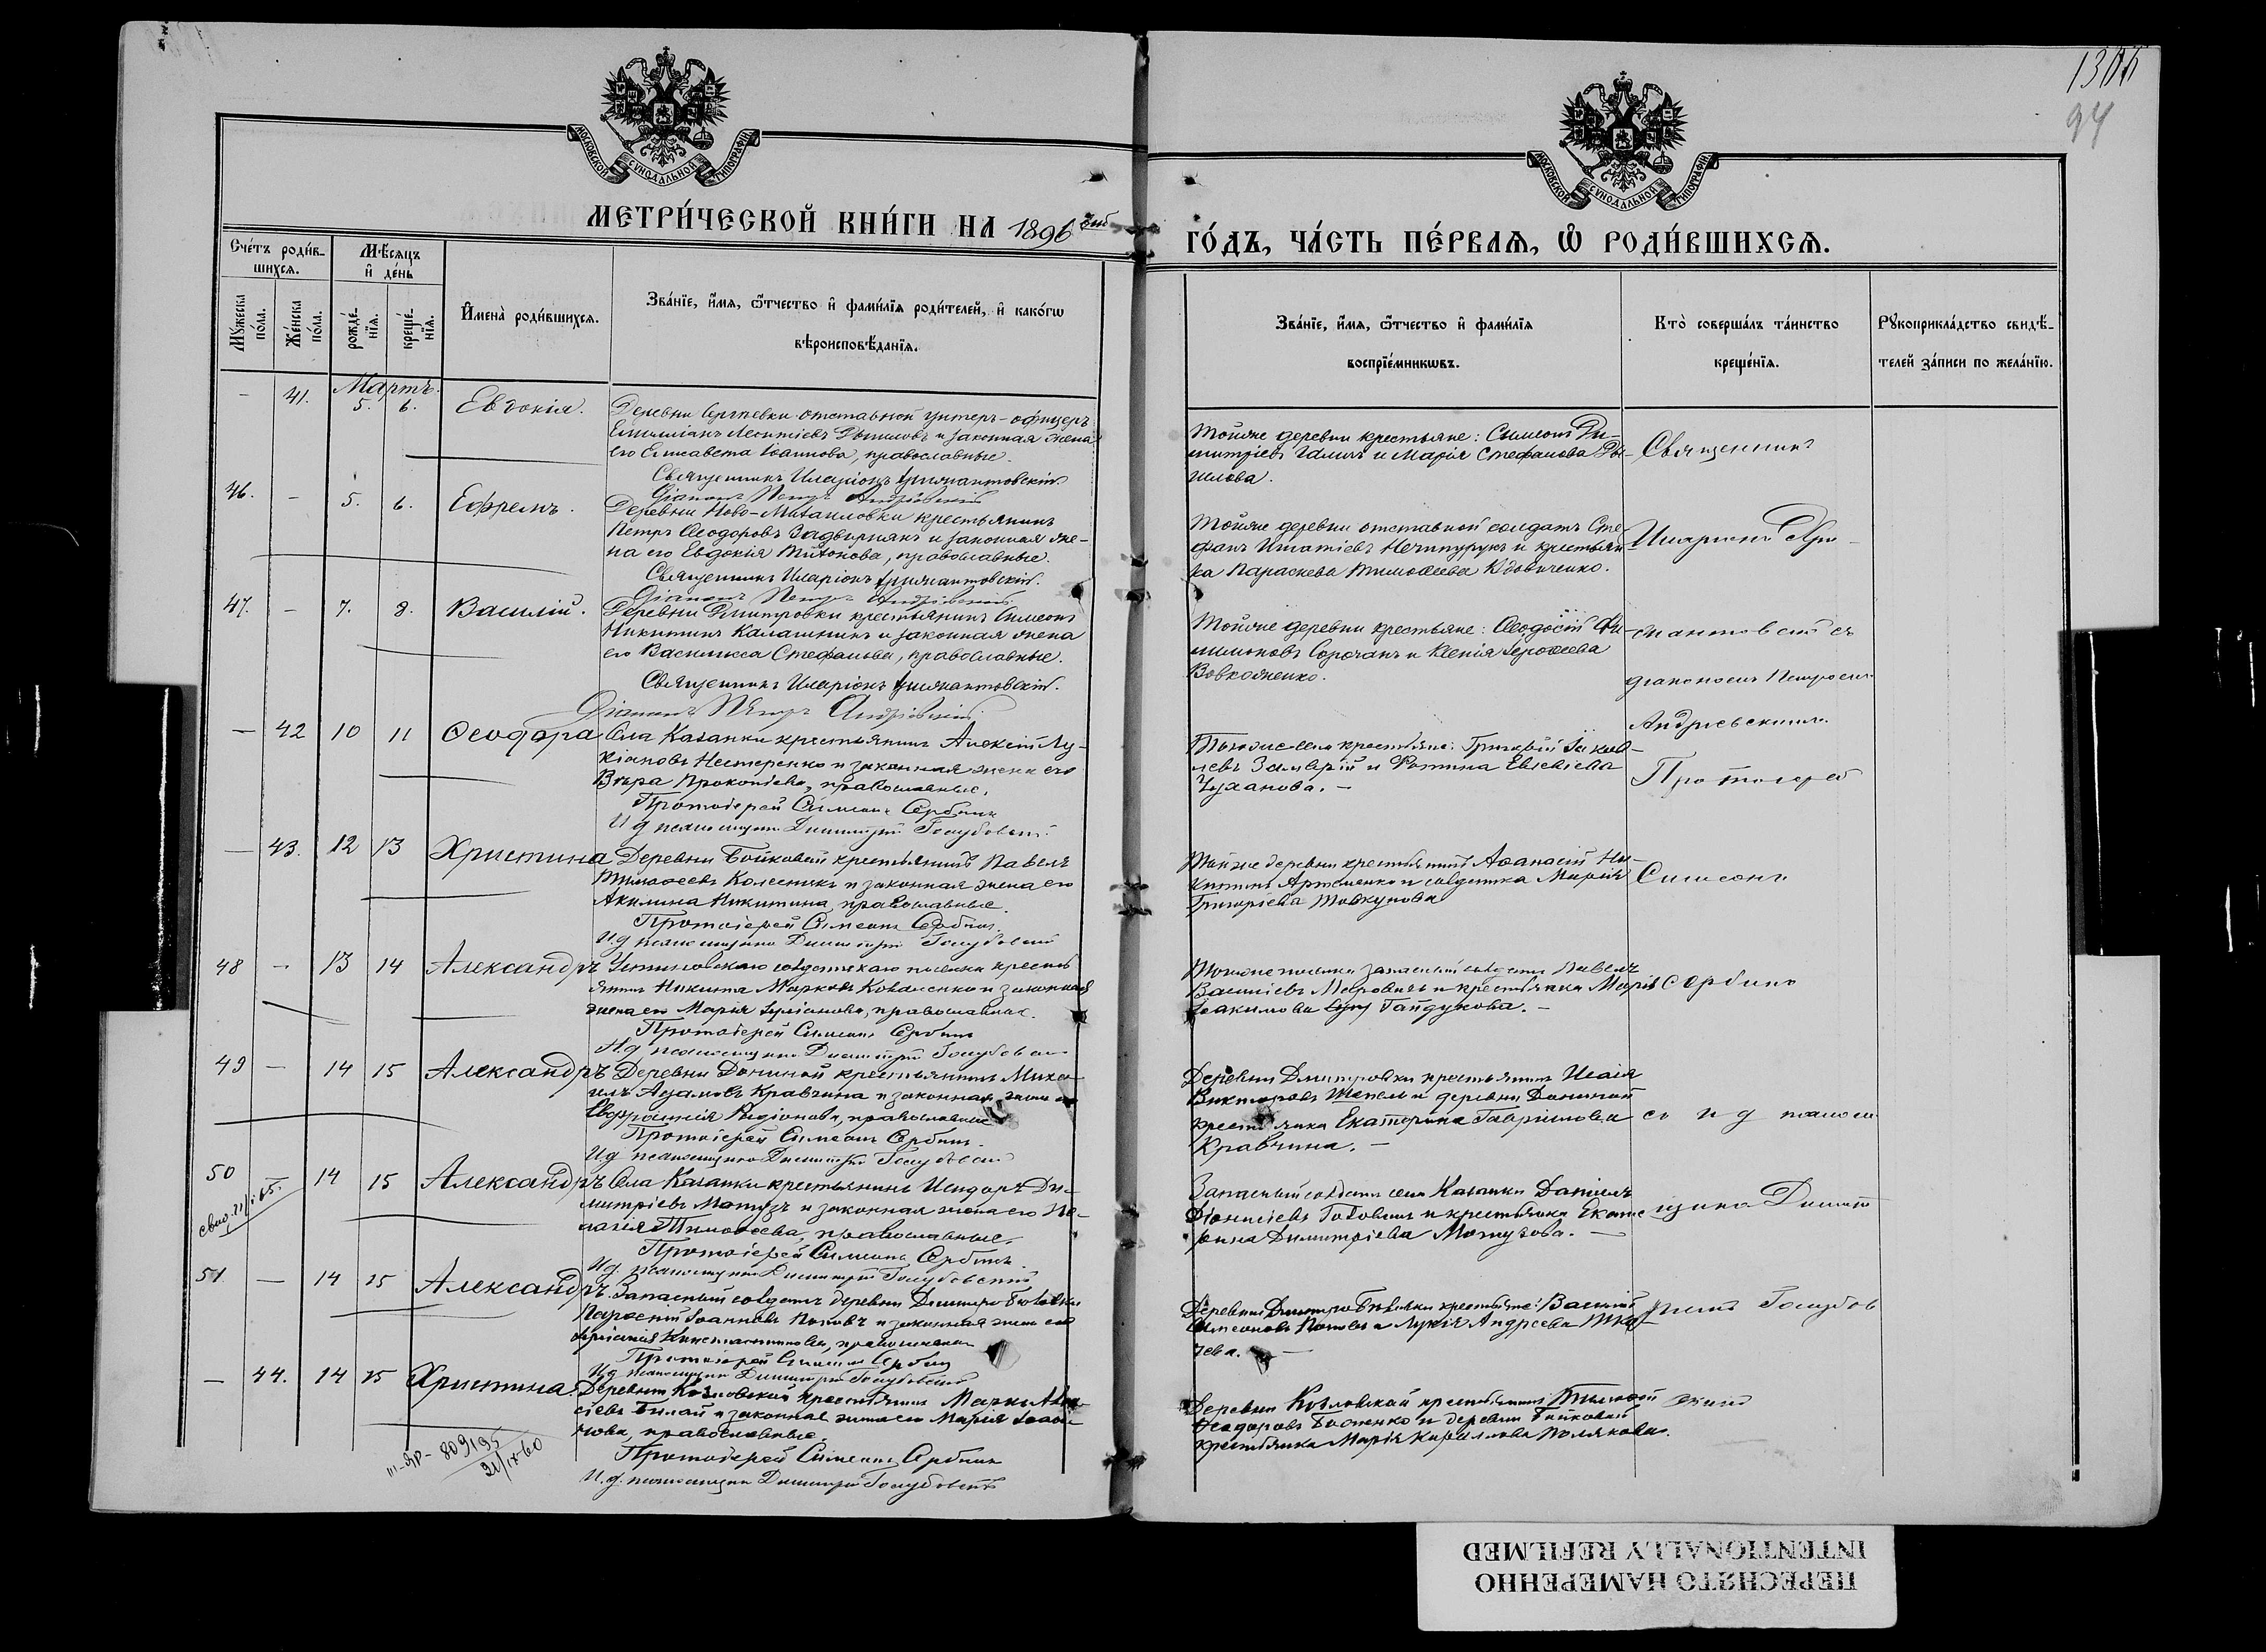 1305
94
МОСКОВСКОЙ СѴНОДАЛЬНОЙ ТИПОГРАФІИ
МОСКОВСКОЙ СѴНОДАЛЬНОЙ ТИПОГРАФІИ
МЕТРИ́ЧЕСКОЙ КНИ́ГИ НА 1896
ГО́ДЪ, ЧА́СТЬ ПЕ́РВАЯ, Ѡ РОДИ́ВШИХСЯ.
Сче́тъ роди́в-
шихся.
Мѣ́сяцъ
и де́нь
Мꙋ́жеска
по́ла.
Же́нска
по́ла.
рожде́-
нїя.
креще́-
нїя.
И҆мена̀ роди́вшихся.
Зва́нїе, и҆́мя, ѻ҆́тчество и҆ фами́лїя роди́телей, и҆ како́гѡ
вѣроисповѣ́данїя.
Зва́нїе, и҆́мя, ѻ҆́тчество и҆ фами́лїя
воспрїе́мникѡвъ.
Кто̀ соверша́лъ та́инство
креще́нїя.
Рꙋкоприкла́дство свидѣ́-
телей за́писи по жела́нїю.
Мартъ.
— 41. 5. 6. Евдокія.
Деревни Сергѣевки отставной унтеръ-офицеръ
Емиліанъ Леонтіевъ и законная жена
его Елисавета Іоаннова, православные.
Священникъ Иларіонъ
Діаконъ Петръ Андріевскій
Тойже деревни крестьяне: Симеонъ Ди-
митріевъ и Марія Стефанова Ды-
шлова.
Священникъ
46. — 5. 6. Ефремъ.
Деревни Ново-Михаиловки крестьянинъ
Петръ Ѳеодоровъ Задвирнякъ и законная же-
на его Евдокія Титонова, православные.
Священникъ Иларіонъ
Діаконъ Петръ Андріевскій
Тойже деревни отставной солдатъ Сте-
фанъ Игнатіевъ Нечипурукъ и крестьян-
ка Параскева Тимоѳеева Вдовиченко.
Иларіонъ
47. — 7. 8. Василій.
Деревни Дмитровки крестьянинъ Симеонъ
Никитинъ Калашникъ и законная жена
его Василисса Стефанова, православные.
Священникъ Иларіонъ
Діаконъ Петръ Андріевскій
Тойже деревни крестьяне: Ѳеодосій Фи-
лимоновъ Сорочанъ и Ксенія Іероѳеева
Вовкоженко.
діакономъ Петромъ
Андріевскимъ.
— 42 10 11 Ѳеодора
Села Казанки крестьянинъ Алексій Лу-
кіановъ Нестеренко и законная жена его
Вѣра Прокопіева, православные.
Протоіерей Симеонъ Сербинъ
И д псаломщика Димитрій Голубовскій
Тогоже села крестьяне: Григорій Іаков-
левъ и Фотина Евсевіева
Чуханова. —
Протоіерей
— 43. 12 13 Христина
Деревни Бойковой крестьянинъ Павелъ
Тимоѳеевъ Колесникъ и законная жена его
Акилина Никитина, православные.
Протоіерей Симеонъ Сербинъ
И д псаломщика Димитрій Голубовскій
Тойже деревни крестьянинъ Аѳанасій Ни-
китинъ Артеменко и солдатка Марія
Григоріева Товкунова
Симеонъ
48 — 13 14 Александръ
солдатскаго поселка кресть
янинъ Никита Марковъ Коваленко и законная
жена его Марія, православные.
Протоіерей Симеонъ Сербинъ
И д псаломщика Димитрій Голубовскій
Тогоже поселка запасный солдатъ Павелъ
Василіевъ и крестьянка Марія
Іоакимова Гайдукова. —
Сербинъ
49 — 14 15 Александръ
Деревни Дониной крестьянинъ Миха-
илъ Адамовъ Кравчина и законная жена его
Евфросинія Родіонова, православные
Протоіерей Симеонъ Сербинъ.
И д псаломщика Димитрій Голубовскій
Деревни Дмитровки крестьянинъ Исаія
Викторовъ и деревни Дониной
крестьянка Екатерина Гавріилова
Кравчина. —
съ и д псалом
50 — 14 15 Александръ
Села Казанки крестьянинъ Исидоръ Ди-
митріевъ Мотузъ и законная жена его Пе-
лагія Тимоѳеева, православные.
Протоіерей Симеонъ Сербинъ.
И д. псаломщика Димитрій Голубовскій
Запасный солдатъ села Казанки Даніилъ
Діонисіевъ и крестьянка Екате
рина Димитріева Мотузова. —
щика Димит
51. — 14 15 Александръ.
Запасный солдатъ деревни Дмитро-Бѣловки
Іоанновъ Поповъ и законная жена его
Константинова, православные
Протоіерей Симеонъ Сербинъ
И д псаломщика Димитрій Голубовскій
Деревни Дмитро-Бѣловки крестьяне: Василій
Симеоновъ Поповъ и Лукія Андреева Тка-
чева. —
ріемъ Голубов
— 44. 14 15 Христина
Деревни Козловской крестьянинъ Марко
и законная жена его Марія Іоан-
нова, православные.
Протоіерей Симеонъ Сербинъ
И. д. псаломщика Димитрій Голубовскій
Деревни Козловской крестьянинъ Тимоѳей
Ѳеодоровъ и деревни Бойковой
крестьянка Марія Кириллова Полякова.
скимъ
809195
ПЕРЕСНЯТО НАМЕРЕННО
INTENTIONALLY REFILMED